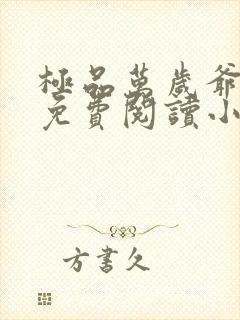 極品萬歲爺
免費閱讀小
方書久